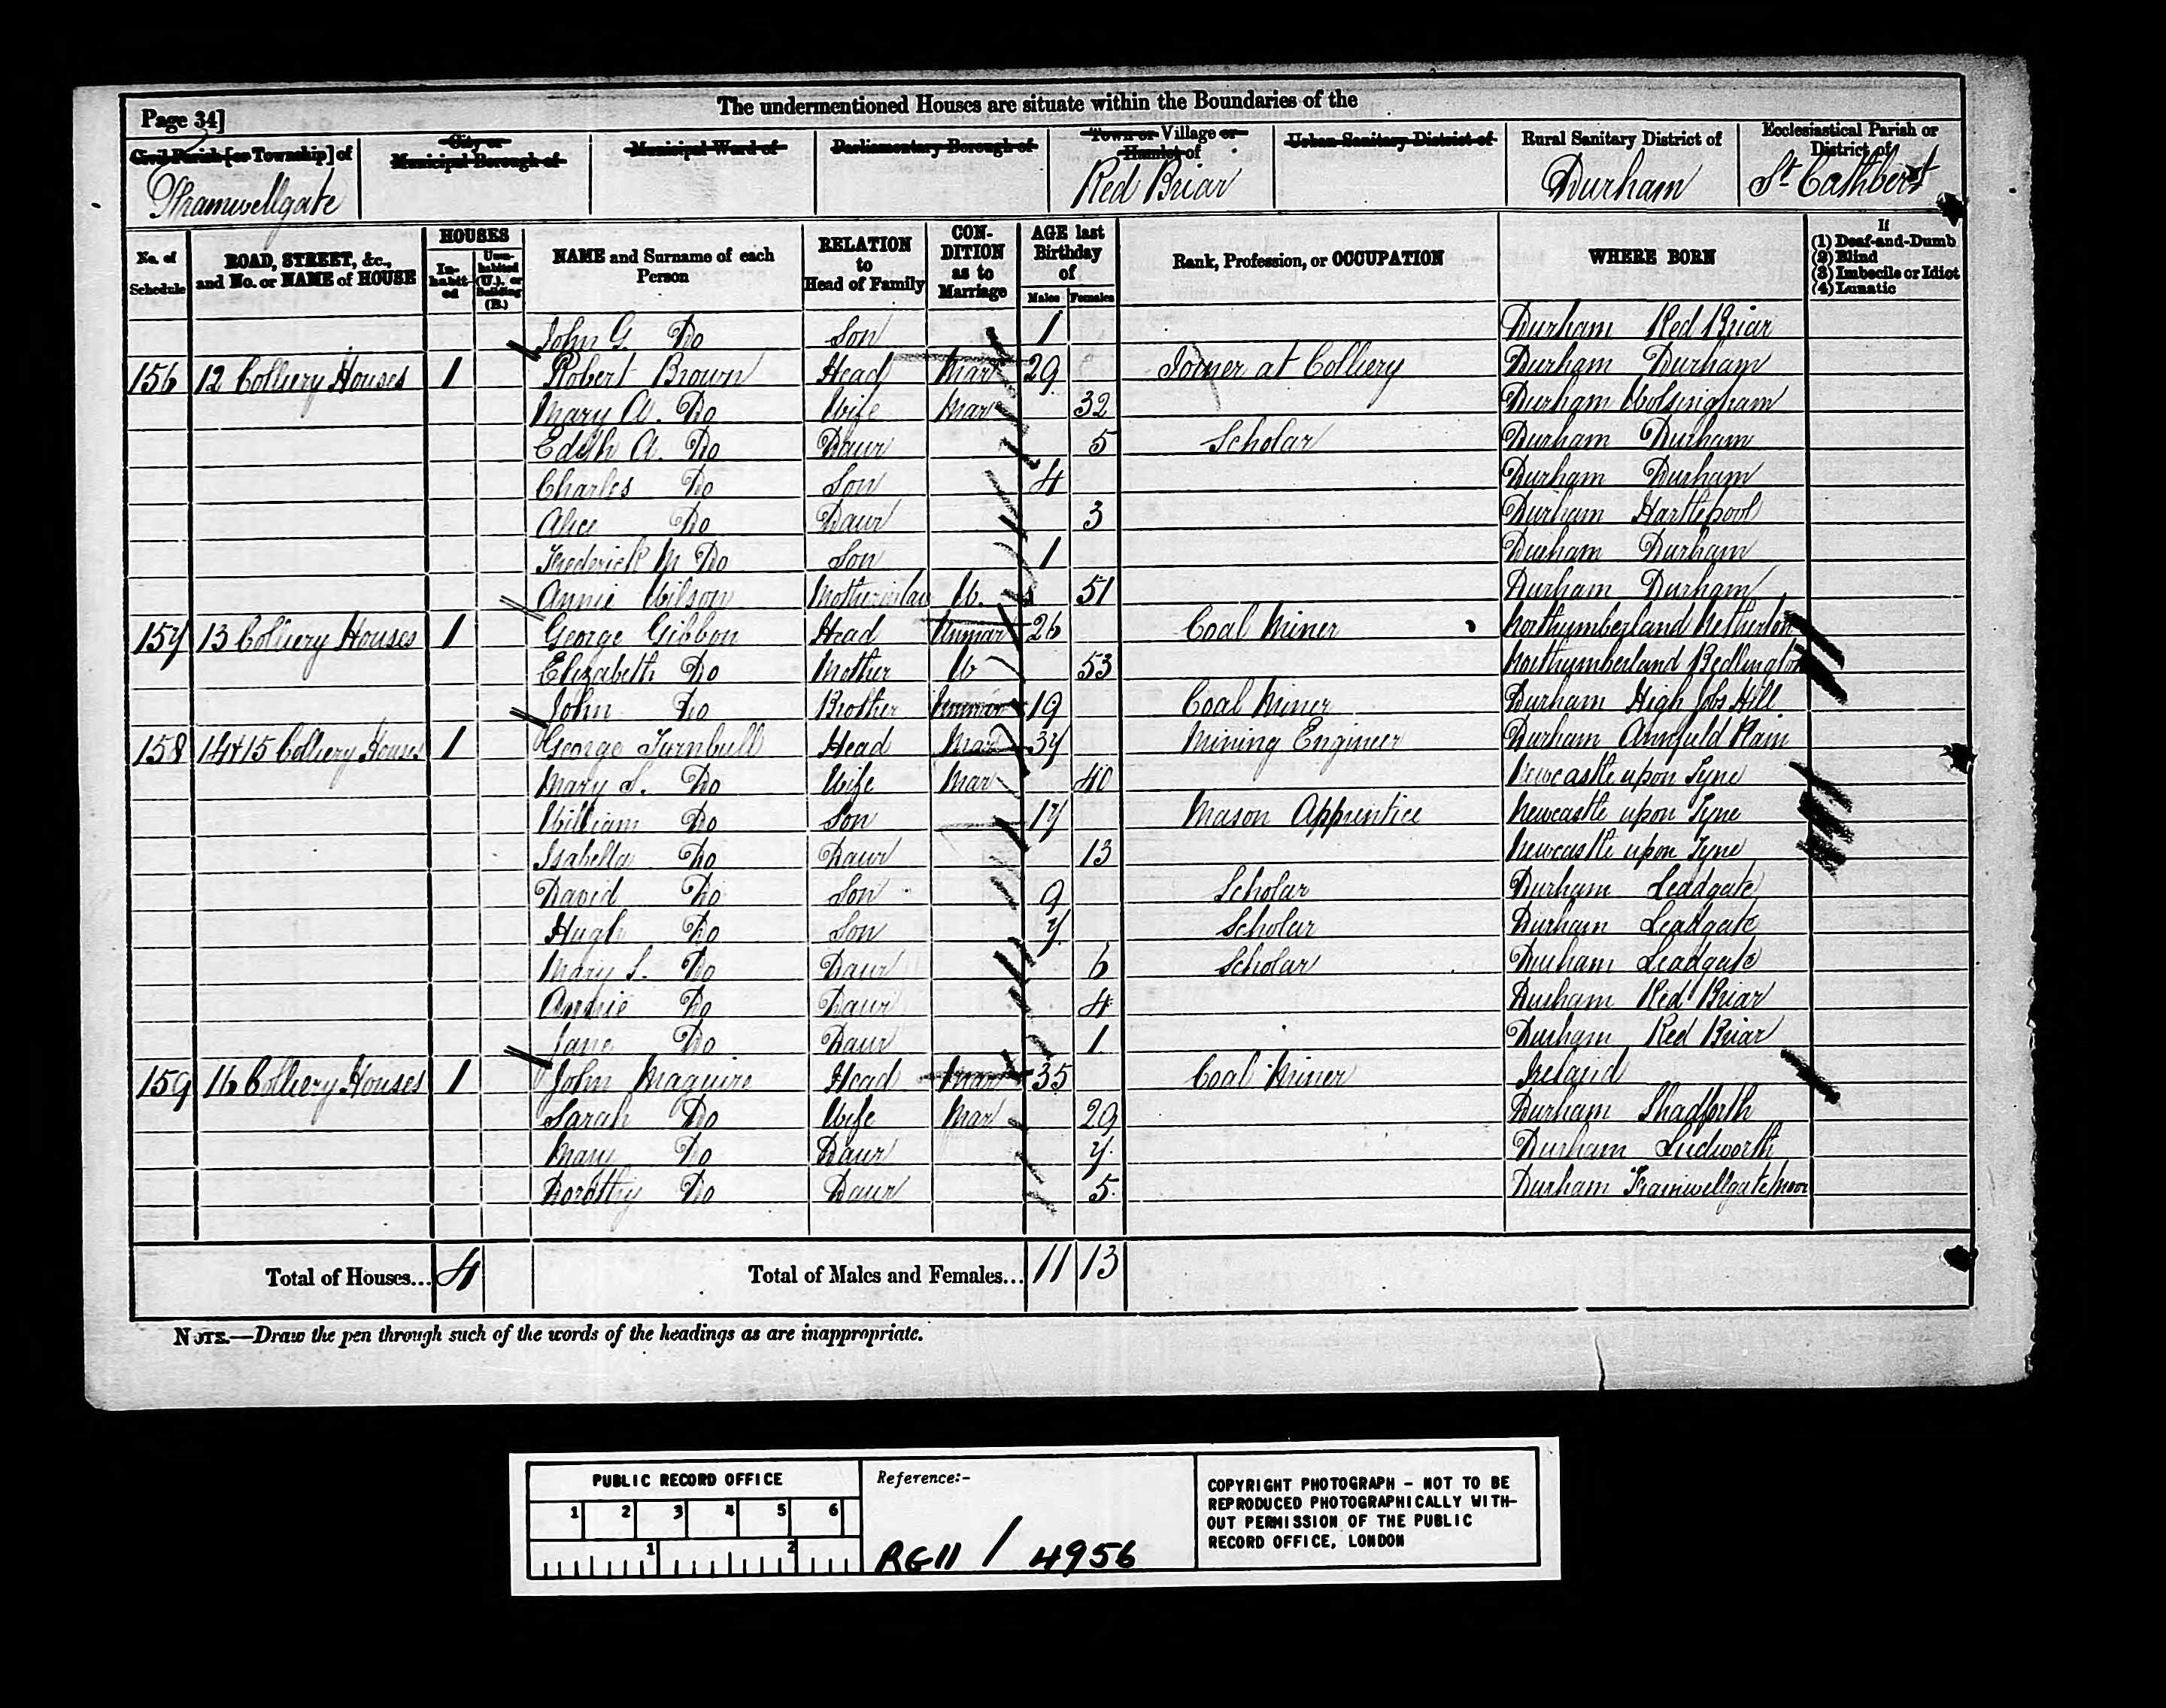 Page 34]
The undermentioned Houses are situate within the Boundaries of the
Civil Parish [or Township] of
City or Municipal Borough of
Municipal Ward of
Parliamentary Borough of
Town or Village or Hamlet of
Urban Sanitary District of
Rural Sanitary District of
Ecclesiastical Parish or District of
Framwellgate Red Briar Durham St Cathbert
No. of Schedule
ROAD, STREET, &c., and No. or NAME of HOUSE
HOUSES
Inhabited
Uninhabited (U.), or Building (B.)
NAME and Surname of each Person
RELATION to Head of Family
CONDITION as to Marriage
AGE last Birthday of
Males Females
Rank, Profession, or OCCUPATION
WHERE BORN
If
(1) Deaf-and-Dumb
(2) Blind
(3) Imbecile or Idiot
(4) Lunatic
John G. Do Son 1 Durham Red Briar
156 12 Colliery Houses 1 Robert Brown Head Mar 29 Joiner at Colliery Durham Durham
Mary A. Do Wife Mar 32 Durham Wolsingham
Edith A. Do Daur 5 Scholar Durham Durham
Charles Do Son 4 Durham Durham
Alice Do Daur 3 Durham Hartlepool
Frederick M Do Son 1 Durham Durham
Annie Wilson Motherinlaw W. 51 Durham Durham
157 13 Colliery Houses 1 George Gibbon Head Unmar 26 Coal Miner Northumberland Netherton
Elizabeth Do Mother W 53 Northumberland Bedlington
John Do Brother Unmar 19 Coal Miner Durham High Jobs Hill
158 14&15 Colliery Houses 1 George Turnbull Head Mar 37 Mining Engineer Durham Annfield Plain
Mary S. Do Wife Mar 40 Newcastle upon Tyne
William Do Son 17 Mason Apprentice Newcastle upon Tyne
Isabella Do Daur 13 Newcastle upon Tyne
David Do Son 9 Scholar Durham Leadgate
Hugh Do Son 7 Scholar Durham Leadgate
Mary S. Do Daur 6 Scholar Durham Leadgate
Annie Do Daur 4 Durham Red Briar
Jane Do Daur 1 Durham Red Briar
159 16 Colliery Houses 1 John Maguire Head Mar 35 Coal Miner Ireland
Sarah Do Wife Mar 29 Durham Shadforth
Mary Do Daur 7 Durham Ludworth
Dorothy Do Daur 5 Durham Framwellgate Moor
Total of Houses... 4 Total of Males and Females... 11 13
NOTE.—Draw the pen through such of the words of the headings as are inappropriate.
PUBLIC RECORD OFFICE
1 2 3 4 5 6
1 2
Reference:-
RG11 / 4956
COPYRIGHT PHOTOGRAPH - NOT TO BE
REPRODUCED PHOTOGRAPHICALLY WITH-
OUT PERMISSION OF THE PUBLIC
RECORD OFFICE, LONDON